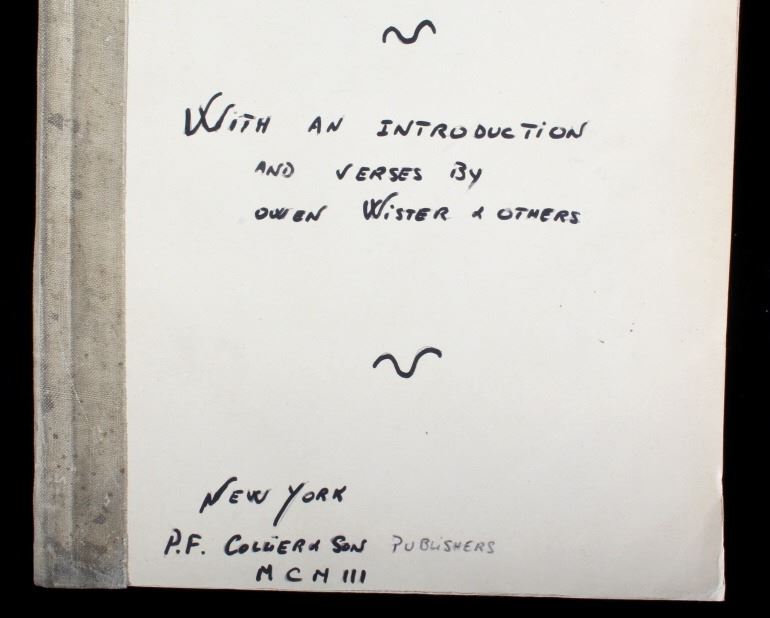 With an introduction
and verses by
Owen Wister & others
New York
P.F. Collier & Son Publishers
MCMIII